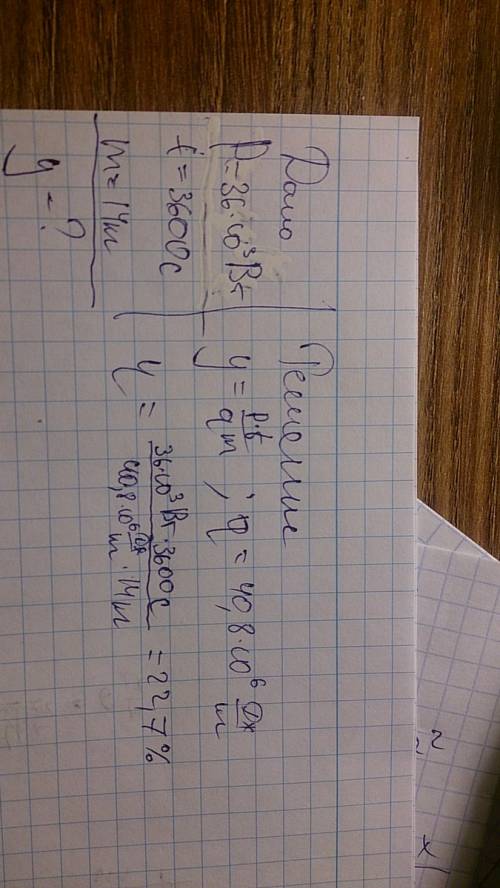 Дано
P=36·10³Вт
t=3600с
m=14л
η-?
Решение
η = P·t/qm ; q = 40,8·10⁶ Дж/л
η = 36·10³Вт·3600с / 40,8·10⁶ Дж/л · 14л = 22,7%
2
x